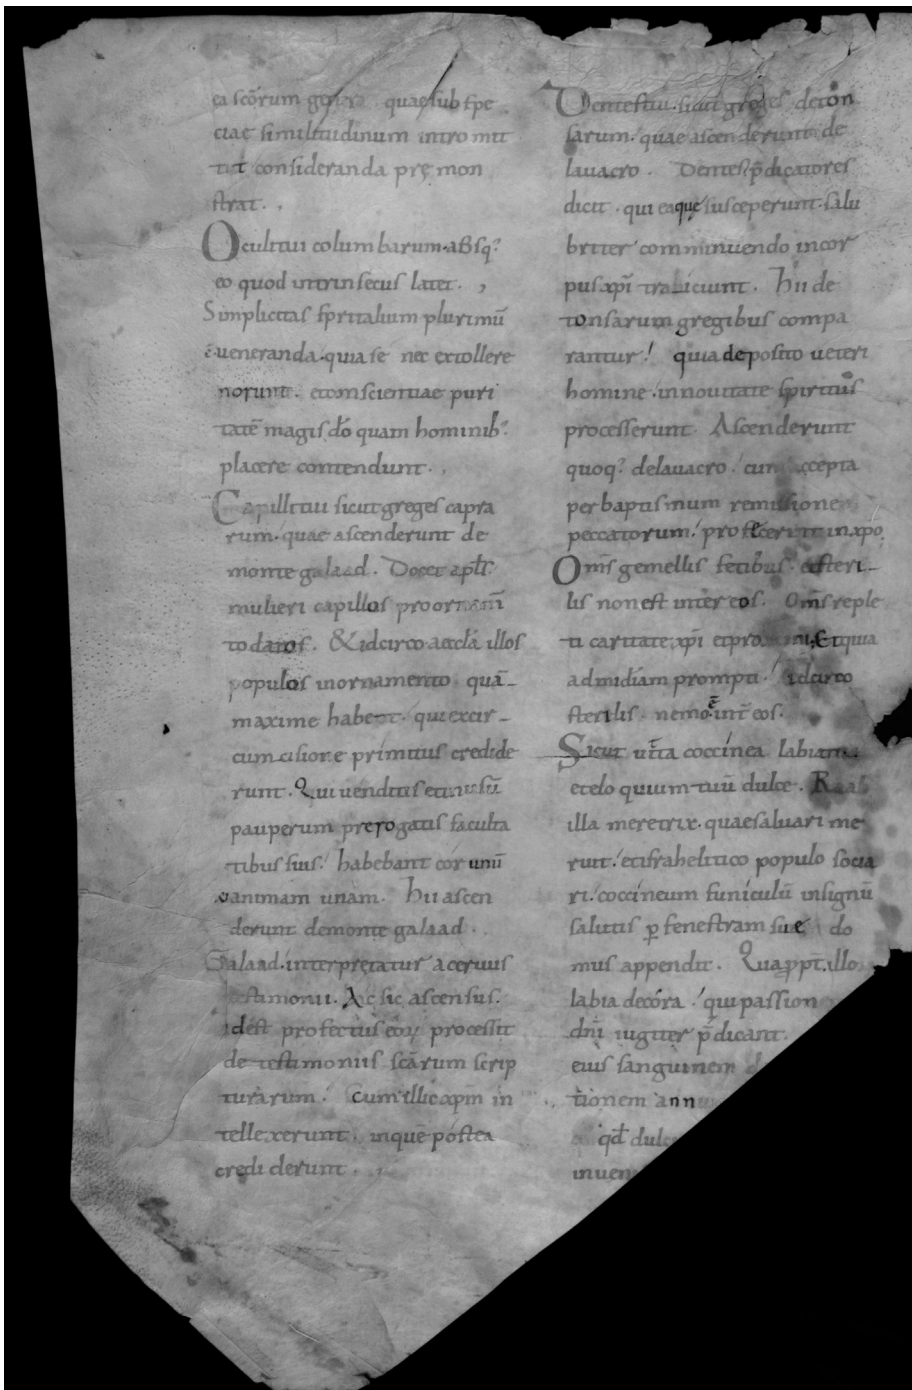 ea scōrum genera quae sub spe
ciae similitudinum intro mit
tit consideranda pręmon
strat.
Oculi tui columbarum. absq;
eo quod intrinsecus latet.
Simplicitas spiritalium plurimū
ē ueneranda. quia se nec extollere
norunt. et conscientiae puri
tatē magis dō quam hominib;
placere contendunt.
Capilli tui sicut greges capra
rum. quae ascenderunt de
monte galaad. Docet apłs.
mulieri capillos pro ornam̄
to datos. & idcirco aecclā illos
populos in ornamento quā
maxime habent. qui ex cir
cumcisione primitus credide
runt. Qui uenditis et in usū
pauperum prerogatis faculta
tibus suis. habebant cor unū
& animam unam. Hii ascen
derunt de monte galaad.
Galaad. interpretatur aceruus
testimonii. Ac sic ascensus.
id est profectus eoꝝ processit
de testimoniis scārum scrip
turarum. Cum illic xpm̄ in
tellexerunt. in quē postea
crediderunt.
Dentes tui. sicut greges deton
sarum. quae ascenderunt de
lauacro. Dentes p̄dicatores
dicit. qui ea que susceperunt. salu
briter comminuendo in cor
pus xpī traiciunt. Hii de
tonsarum gregibus compa
rantur. quia deposito ueteri
homine. in nouitate spiritus
processerunt. Ascenderunt
quoq; de lauacro. cum accepta
per baptismum remissione
peccatorum. profecerunt in xpo.
Om̄s gemellis fetibus. & steri
lis non est inter eos. Om̄s reple
ti caritate. xpī et proximi, Et quia
ad midiam prompti. idcirco
sterilis. nemo ē int̄ eos.
Sicut uitta coccinea labia tua
et eloquium tuū dulce. Raab
illa meretrix. quae saluari me
ruit. et israhelitico populo socia
ri. coccineum funiculū in signū
salutis ꝑ fenestram sue do
mus appendit. Qua ꝓpt̄. illo
labia decora. qui passion
dnī iugiter p̄dicant.
eius sanguinem
tionem ann
qd̄ dulc
inuen